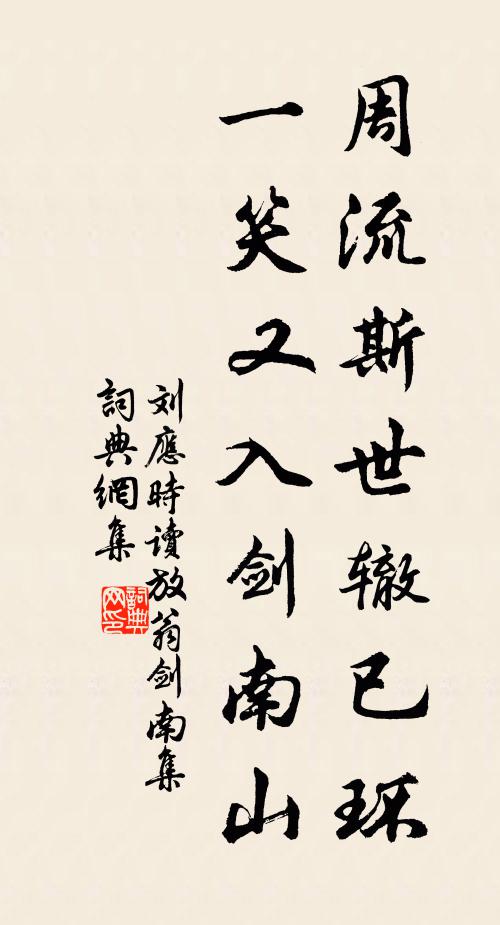 周流斯世辙已环
一笑又入剑南山
刘應時读放翁剑南集
詞典網集
詞典网印